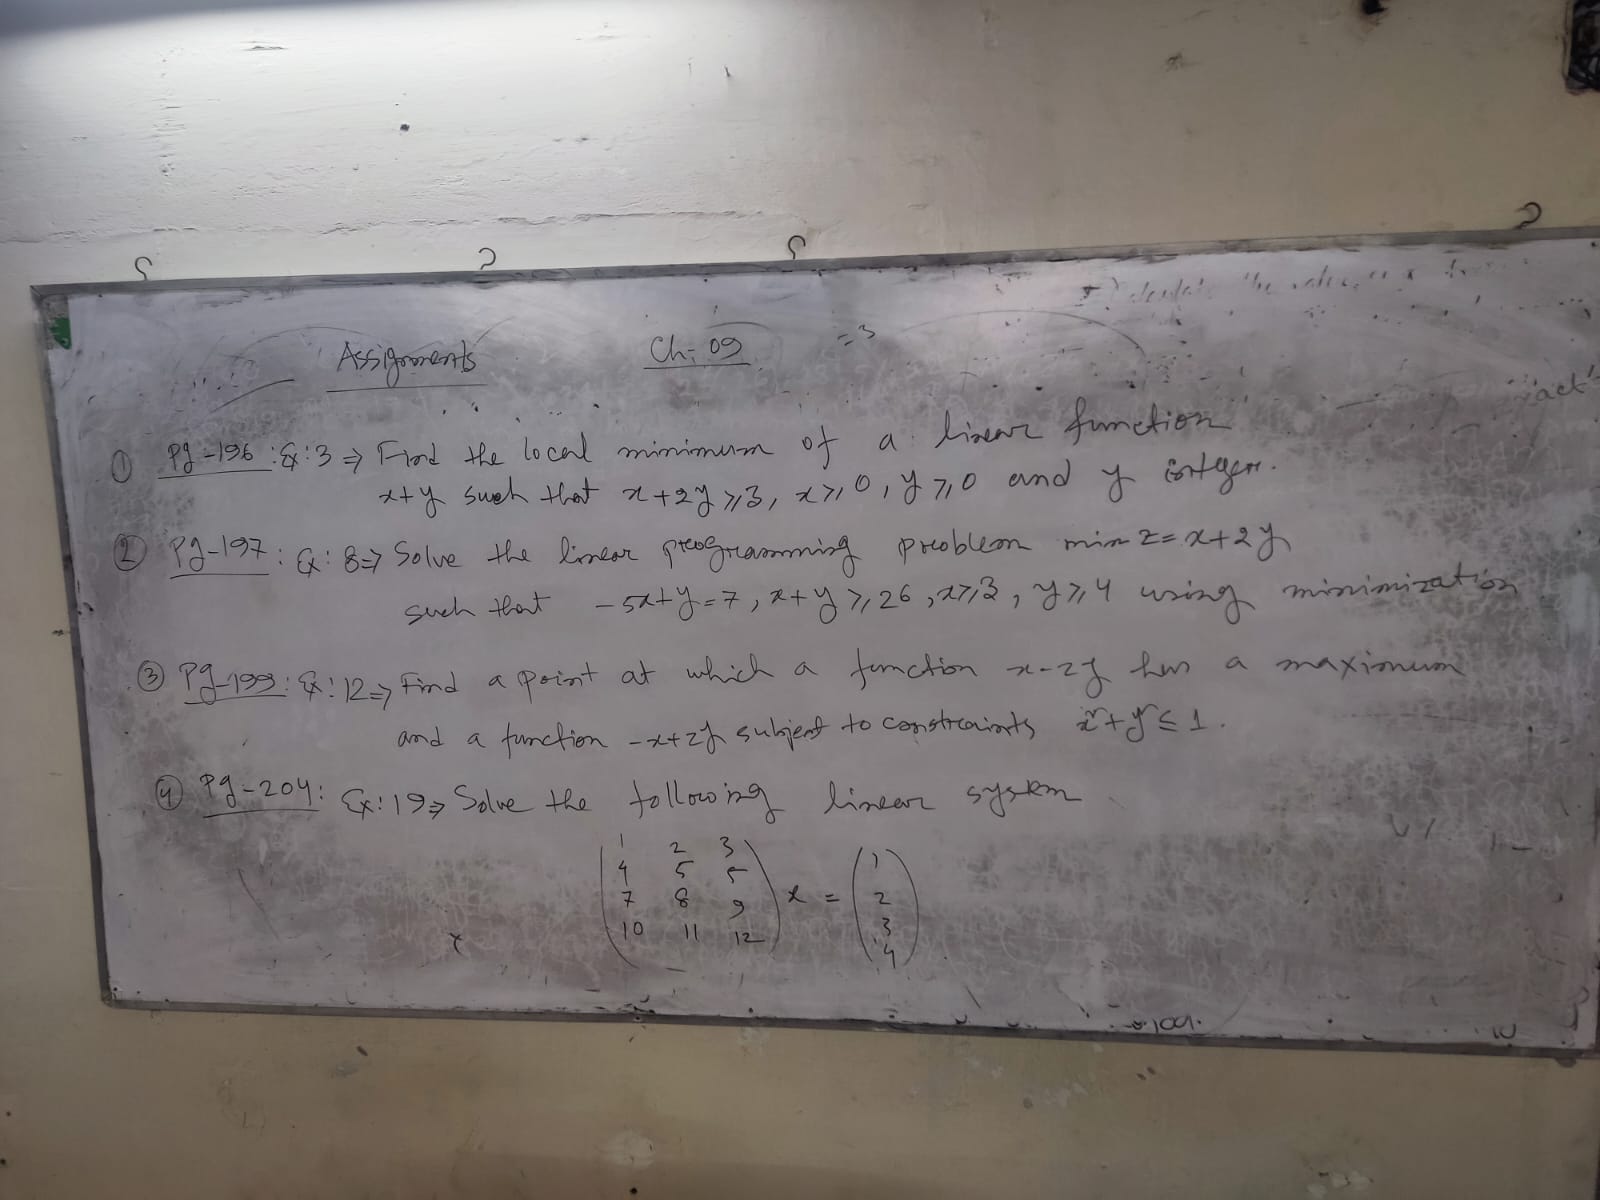 Assignments Ch: 09
① Pg-196: Ex: 3 ⇒ Find the local minimum of a linear function
x+y such that x+2y ≥ 3, x ≥ 0, y ≥ 0 and y integer.
② Pg-197: Ex: 8 ⇒ Solve the linear programming problem min z = x+2y
such that -5x+y = 7, x+y ≥ 26, x ≥ 3, y ≥ 4 using minimization
③ Pg-199: Ex: 12 ⇒ Find a point at which a function x-2y has a maximum
and a function -x+2y subject to constraints x²+y² ≤ 1.
④ Pg-204: Ex: 19 ⇒ Solve the following linear system
1 2 3 1
4 5 5
7 8 9 x = 2
10 11 12 3
4